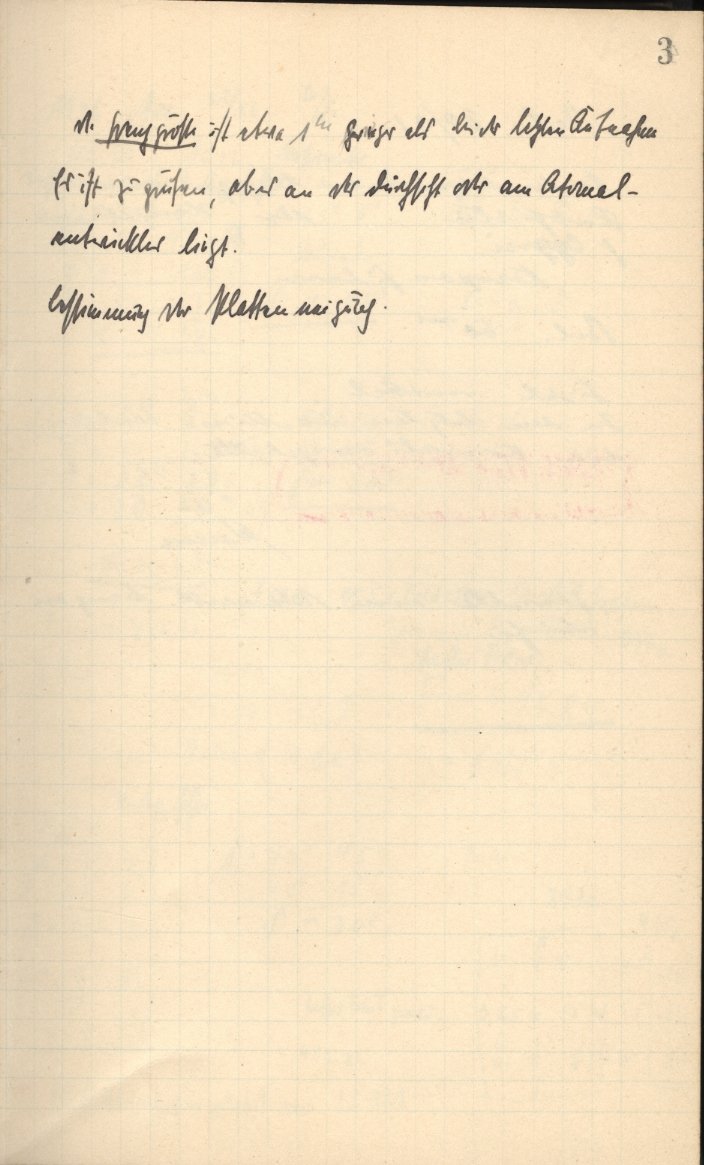 3
die Grenzgröße ist etwa 1ᵐ geringer als bei der letzten Aufnahme
Es ist zu prüfen, ob es an der Durchsicht oder am Atomal-
entwickler liegt.
Bestimmung der Plattenneigung.